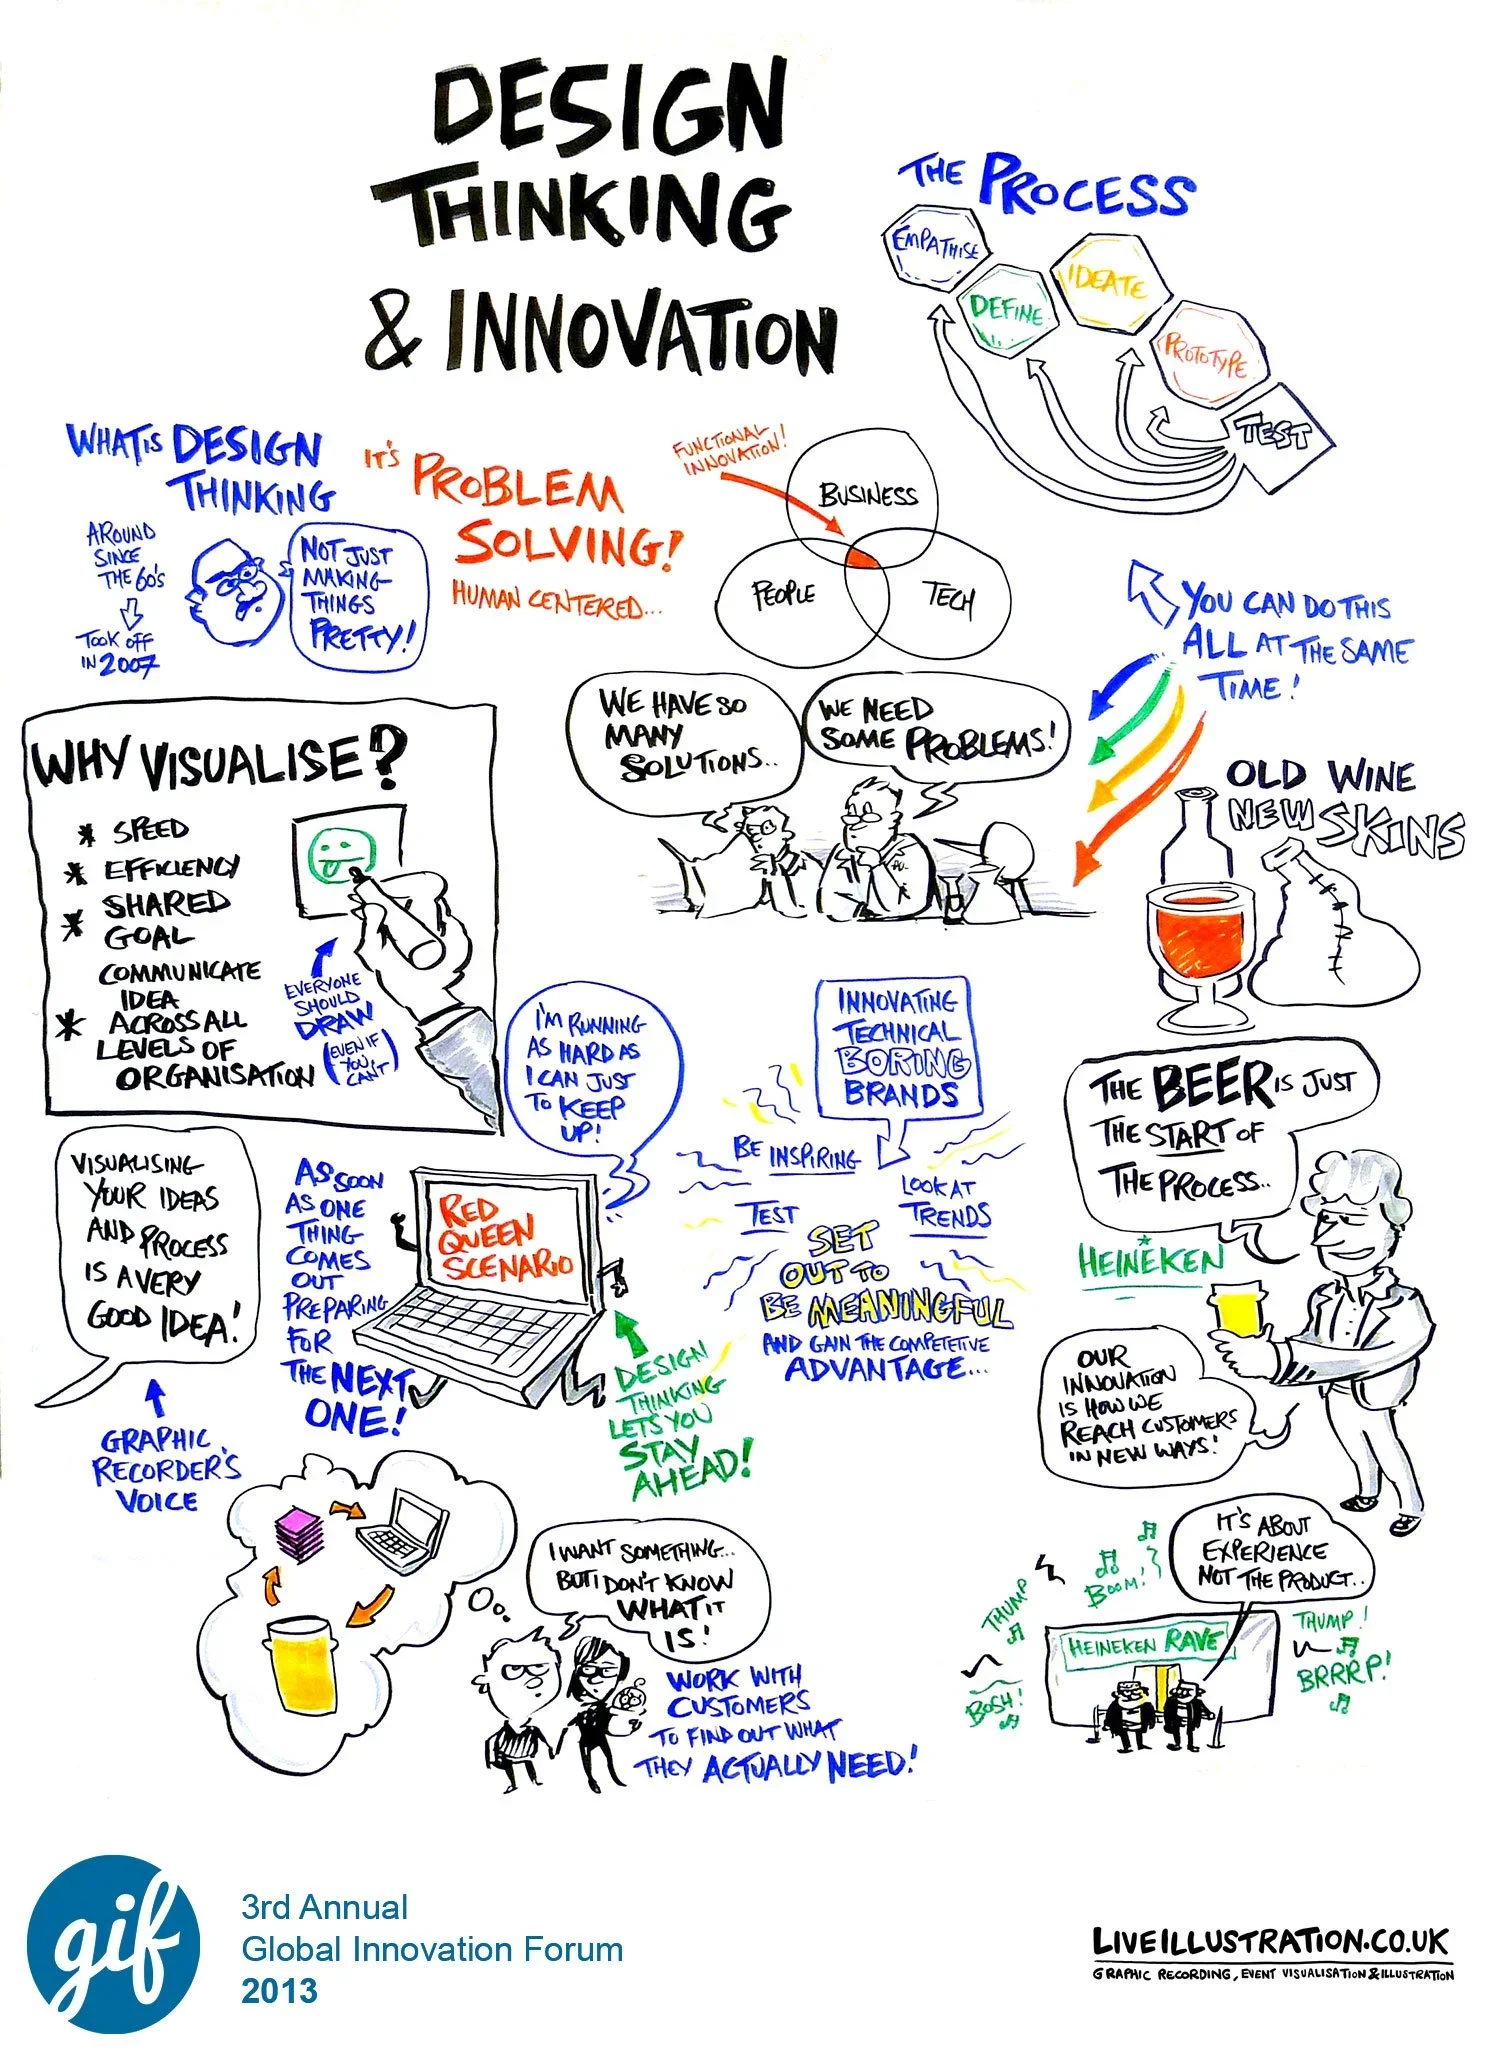 DESIGN
THINKING
& INNOVATION
THE PROCESS
EMPATHISE
DEFINE
IDEATE
PROTOTYPE
TEST
WHAT IS DESIGN
THINKING
AROUND
SINCE
THE 60'S
TOOK OFF
IN 2007
NOT JUST
MAKING
THINGS
PRETTY!
IT'S PROBLEM
SOLVING!
HUMAN CENTERED...
FUNCTIONAL
INNOVATION!
BUSINESS
PEOPLE
TECH
YOU CAN DO THIS
ALL AT THE SAME
TIME!
WE HAVE SO
MANY
SOLUTIONS..
WE NEED
SOME PROBLEMS!
OLD WINE
NEW SKINS
WHY VISUALISE?
* SPEED
* EFFICIENCY
* SHARED
GOAL
COMMUNICATE
IDEA
* ACROSS ALL
LEVELS OF
ORGANISATION
EVERYONE
SHOULD
DRAW
(EVEN IF
YOU
CAN'T)
I'M RUNNING
AS HARD AS
I CAN JUST
TO KEEP
UP!
INNOVATING
TECHNICAL
BORING
BRANDS
BE INSPIRING
TEST
LOOK AT
TRENDS
SET
OUT TO
BE MEANINGFUL
AND GAIN THE COMPETETIVE
ADVANTAGE...
THE BEER IS JUST
THE START OF
THE PROCESS..
HEINEKEN
OUR
INNOVATION
IS HOW WE
REACH CUSTOMERS
IN NEW WAYS!
VISUALISING
YOUR IDEAS
AND PROCESS
IS A VERY
GOOD IDEA!
GRAPHIC
RECORDER'S
VOICE
AS SOON
AS ONE
THING
COMES
OUT
PREPARING
FOR
THE NEXT
ONE!
RED
QUEEN
SCENARIO
DESIGN
THINKING
LETS YOU
STAY
AHEAD!
I WANT SOMETHING...
BUT I DON'T KNOW
WHAT IT
IS!
WORK WITH
CUSTOMERS
TO FIND OUT WHAT
THEY ACTUALLY NEED!
IT'S ABOUT
EXPERIENCE
NOT THE PRODUCT..
THUMP
BOOM!
BOSH!
HEINEKEN RAVE
THUMP!
BRRRP!
gif
3rd Annual
Global Innovation Forum
2013
LIVEILLUSTRATION.CO.UK
GRAPHIC RECORDING, EVENT VISUALISATION & ILLUSTRATION